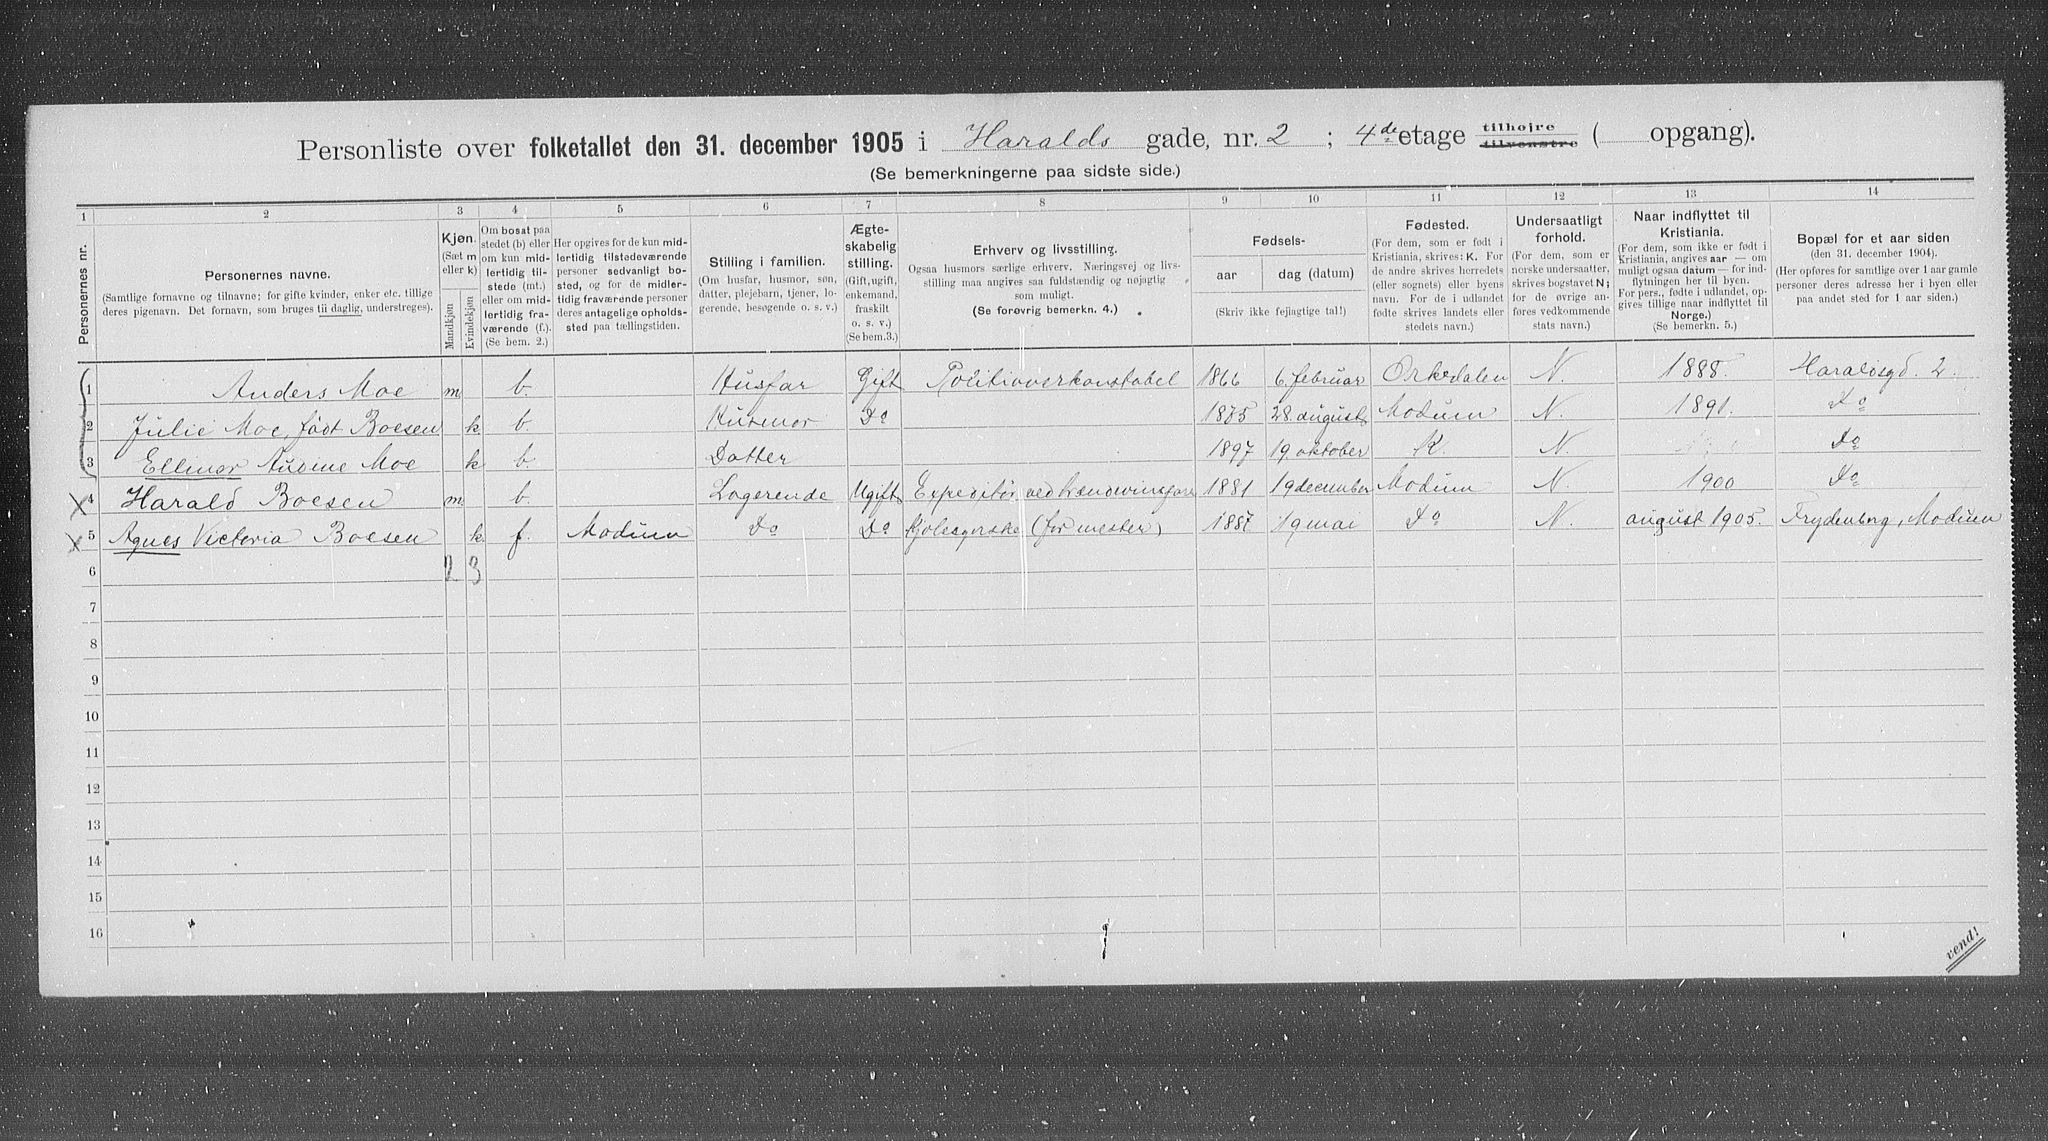 Personliste over folketallet den 31. december 1905 i Haralds gade, nr. 2 ; 4de etage tilhøjre tilvenstre ( opgang).
(Se bemerkningerne paa sidste side.)
1 2 3 4 5 6 7 8 9 10 11 12 13 14
Personernes nr.
Personernes navne.
(Samtlige fornavne og tilnavne; for gifte kvinder, enker etc. tillige
deres pigenavn. Det fornavn, som bruges til daglig, understreges).
Kjøn.
(Sæt m
eller k)
Mandkjøn
Kvindekjøn
Om bosat paa
stedet (b) eller
om kun mid-
lertidig til-
stede (mt.)
eller om mid-
lertidig fra-
værende (f.).
(Se bem. 2.)
Her opgives for de kun mid-
lertidig tilstedeværende
personer sedvanlig bo-
sted, og for de midler-
tidig fraværende personer
deres antagelige opholds-
sted paa tællingstiden.
Stilling i familien.
(Om husfar, husmor, søn,
datter, plejebarn, tjener, lo-
gerende, besøgende o. s. v.)
Ægte-
skabelig
stilling.
(Gift, ugift,
enkemand,
fraskilt
o. s. v.)
(Se bem. 3.)
Erhverv og livsstilling.
Ogsaa husmors særlige erhverv. Næringsvej og livs-
stilling maa angives saa fuldstændig og nøjagtig
som muligt.
(Se forøvrig bemerkn. 4.)
Fødsels-
aar
dag (datum)
(Skriv ikke fejlagtige tal!)
Fødested.
(For dem, som er født i
Kristiania, skrives: K. For
de andre skrives herredets
(eller sognets) eller byens
navn. For de i udlandet
fødte skrives landets eller
stedets navn.)
Undersaatligt
forhold.
(For dem, som er
norske undersaatter,
skrives bogstavet N;
for de øvrige an-
føres vedkommende
stats navn.)
Naar indflyttet til
Kristiania.
(For dem, som ikke er født i
Kristiania, angives aar — om
muligt ogsaa datum — for ind-
flytningen her til byen.
For pers., fødte i udlandet, op-
gives tillige naar indflyttet til
Norge.)
(Se bemerkn. 5.)
Bopæl for et aar siden
(den 31. december 1904).
(Her opføres for samtlige over 1 aar gamle
personer deres adresse her i byen eller
paa andet sted for 1 aar siden.)
1 Anders Moe m b. Husfar Gift Politioverkonstabel 1866 6 februar Orkedalen N. 1888. Haraldsgd. 2.
2 Julie Moe, født Boesen k b Husmor Do 1875 28 august Modum N. 1891. Do
3 Ellinor Audine Moe k b. Datter 1897 19 oktober K. N. Do
4 Harald Boesen m b. Logerende Ugift Expeditør ved 1881 19 december Modum N. 1900 Do
5 Agnes Victoria Boesen k f. Modum Do Do Kjolesyerske (for mester) 1887 19 mai Do N. august 1905. Frydenberg, Modum
6 2 3
7
8
9
10
11
12
13
14
15
16
vend!